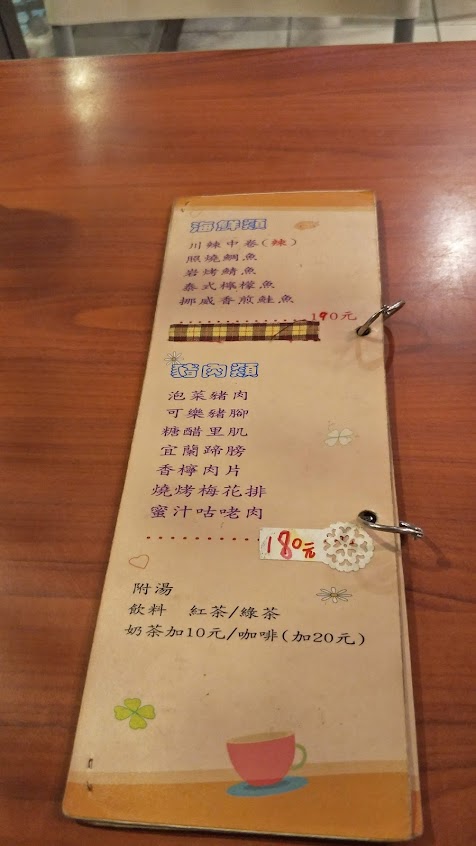 海鮮類
川辣中卷(辣)
照燒鯛魚
岩烤鯖魚
泰式檸檬魚
挪威香煎鮭魚
..................190元
豬肉類
泡菜豬肉
可樂豬腳
糖醋里肌
宜蘭蹄膀
香檸肉片
燒烤梅花排
蜜汁咕咾肉
..........180元
附湯
飲料 紅茶/綠茶
奶茶加10元/咖啡(加20元)